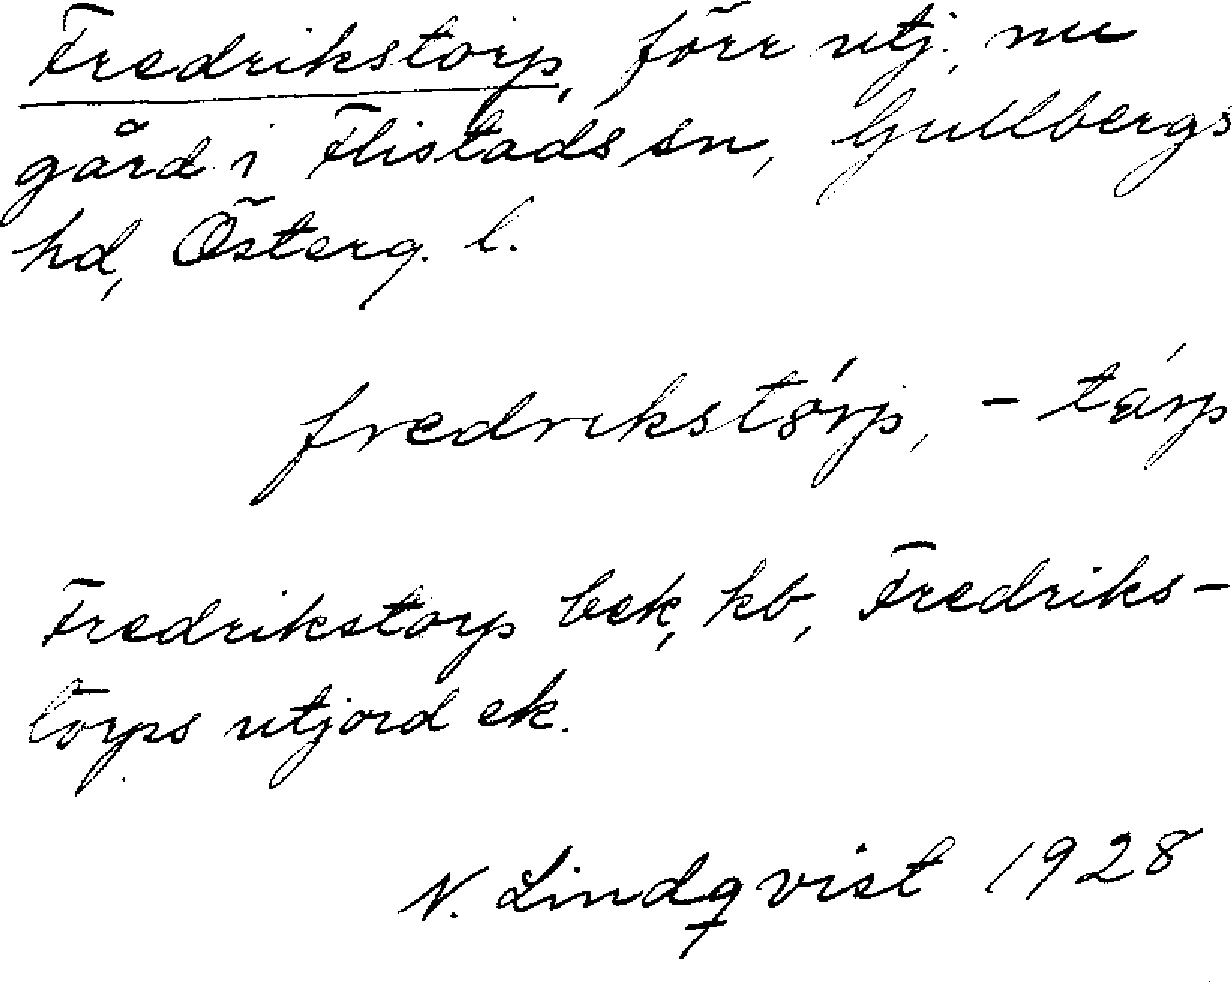 Fredrikstorp, förr utj., nu
gård i Flistads sn, Gullbergs
hd, Österg. l.
fredrikstórp, - tárp
Fredrikstorp bek, kb, Fredriks-
torps utjord ek.
N. Lindqvist 1928